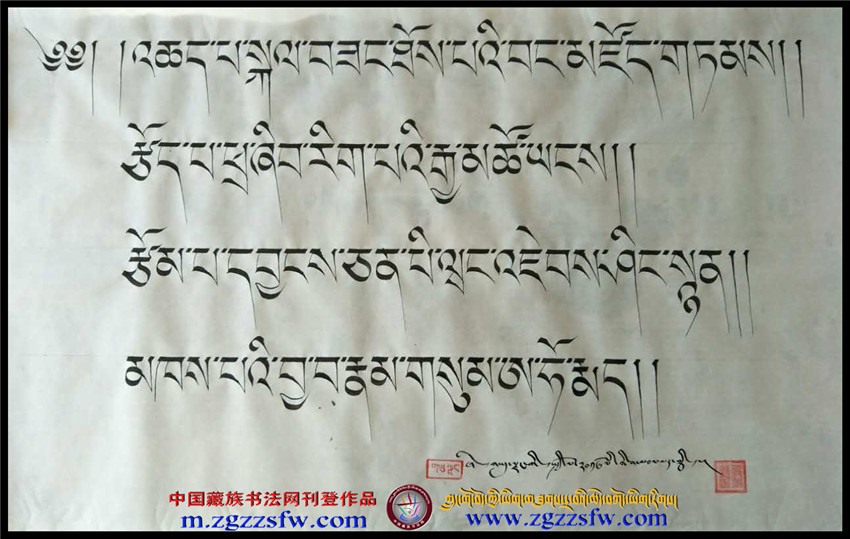 ༄༅། །འཆད་པ་སྐལ་བཟང་ཐོས་པའི་བང་མཛོད་གཏམས།།
རྩོད་པ་ཕྲ་ཞིབ་རིག་པའི་རྒྱ་མཚོ་ཡངས།།
རྩོམ་པ་དབྱངས་ཅན་པི་ཝང་འཇེབས་ཤིང་སྙན།།
མཁས་པའི་བྱ་བ་རྣམ་གསུམ་ཨ་ཧོ་རྨད།།
中国藏族书法网刊登作品
m.zgzzsfw.com
www.zgzzsfw.com